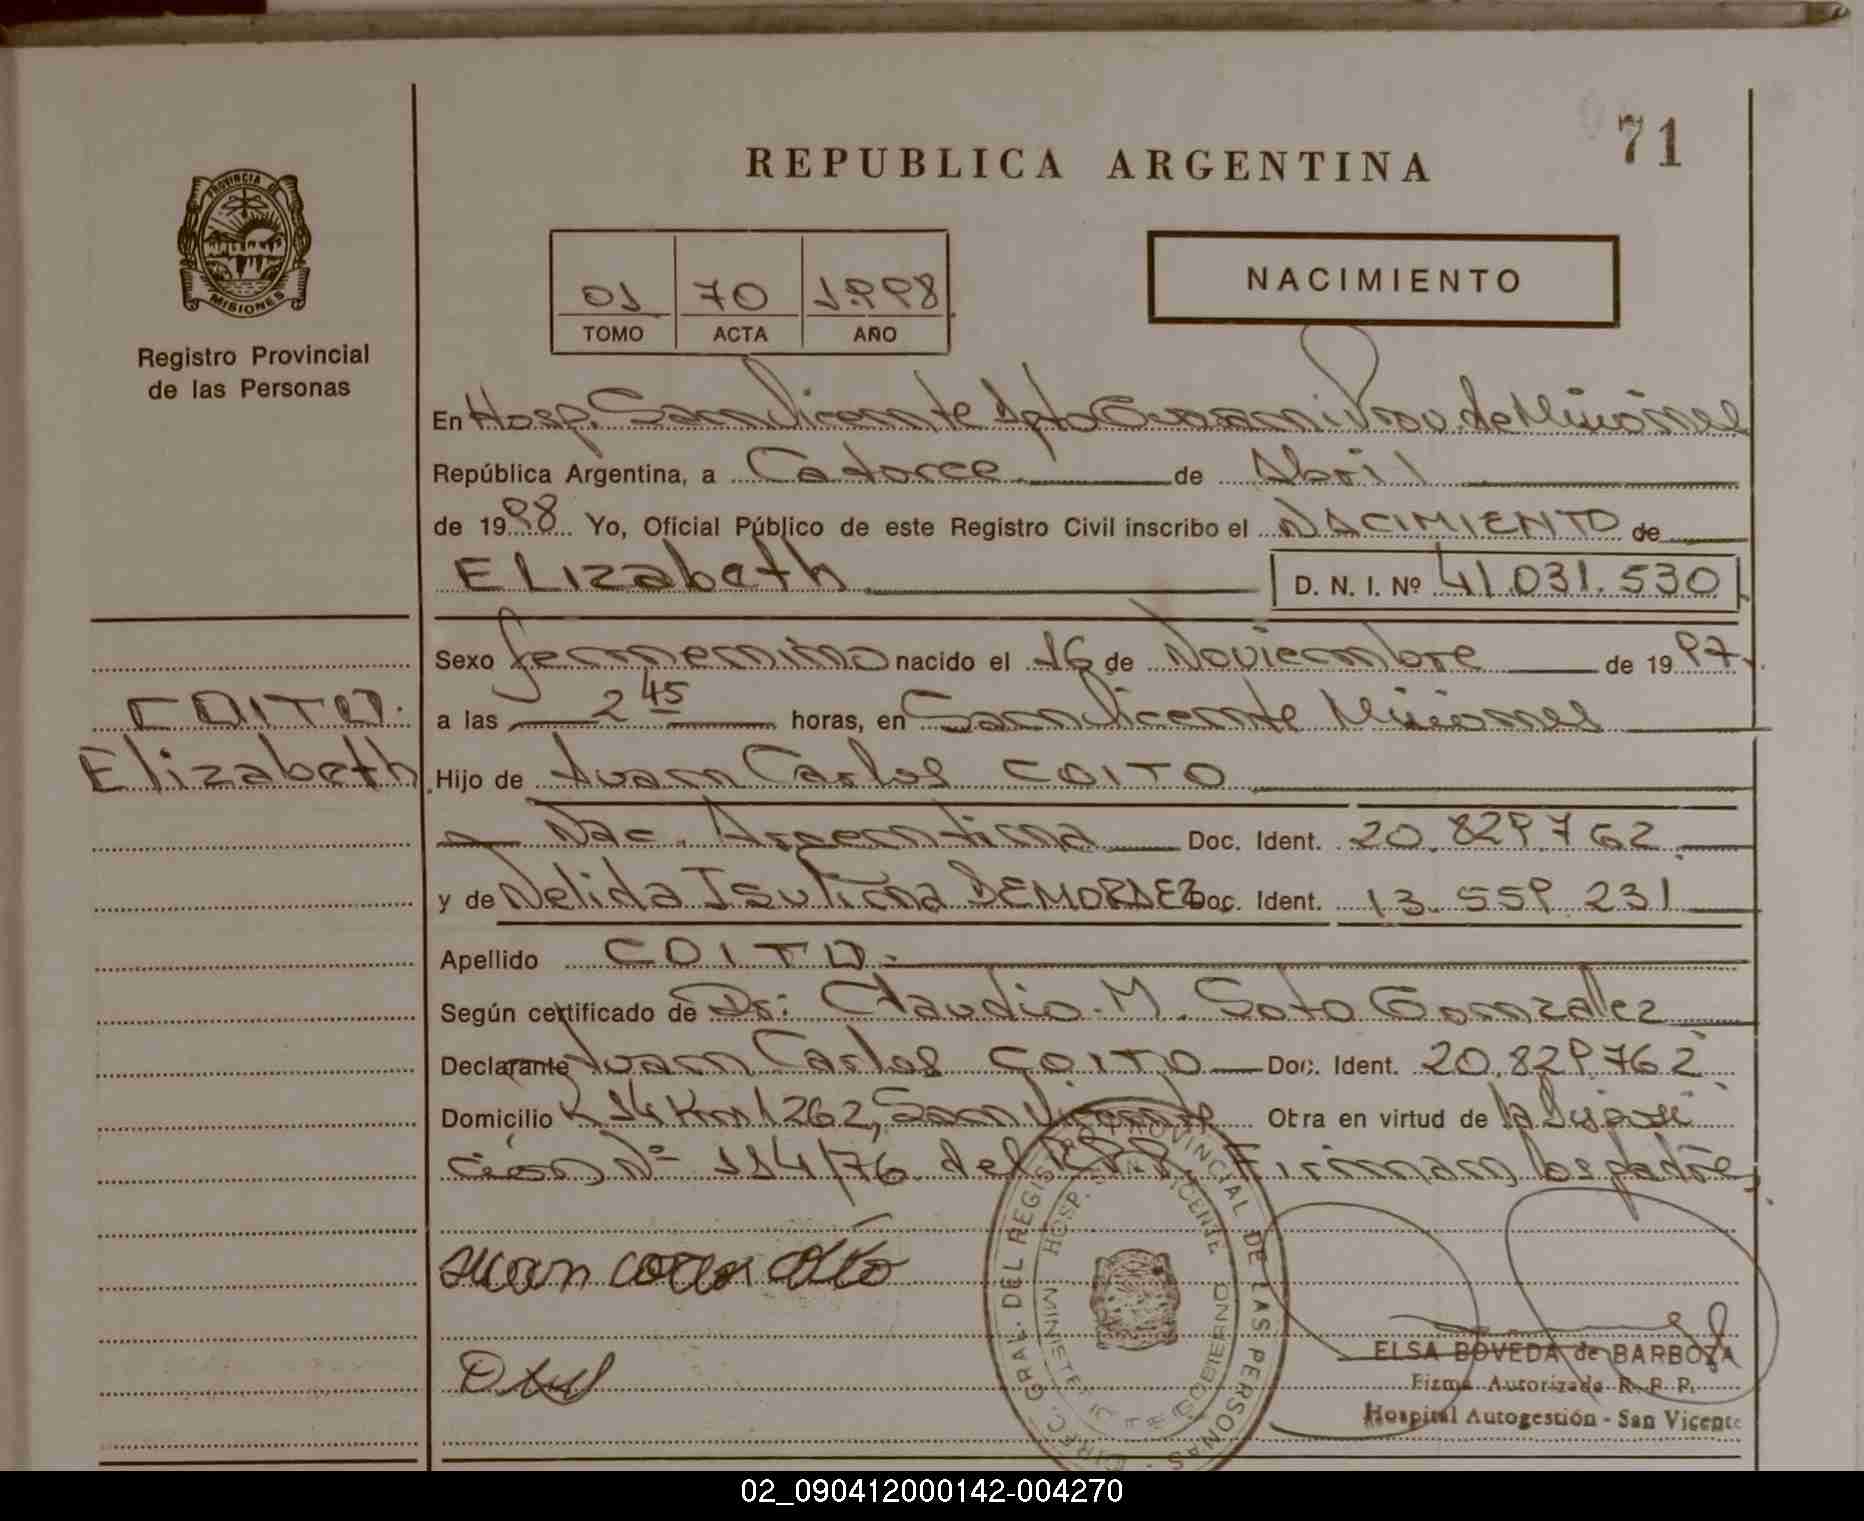 71
REPUBLICA ARGENTINA
PROVINCIA DE
MISIONES
Registro Provincial
de las Personas
01 70 1998
TOMO ACTA AÑO
NACIMIENTO
En Hosp. San Vicente Dpto Guarani Prov. de Misiones
República Argentina, a Catorce de Abril
de 1998 Yo, Oficial Público de este Registro Civil inscribo el NACIMIENTO de
ELizabeth D. N. I. Nº 41.031.530
Sexo femenino nacido el 16 de Noviembre de 1997
a las 2 45 horas, en San Vicente Misiones
COITO.
Elizabeth
Hijo de Juan Carlos COITO
Nac. Argentina Doc. Ident. 20.829.762
y de Nelida Doc. Ident. 13.559.231
Apellido COITO.
Según certificado de Dr: Claudio M. Soto Gonzalez
Declarante Juan Carlos COITO Doc. Ident. 20.829.762
Domicilio R 14 Km 1262, San Vicente Obra en virtud de la Disposi
ción Nº 114/76 del R.P.P. Firman los padres
DIREC. GRAL. DEL REGISTRO PROVINCIAL DE LAS PERSONAS
HOSP. SAN VICENTE
MINISTERIO DE GOBIERNO
ELSA BOVEDA de BARBOZA
Firma Autorizada R. P. P.
Hospital Autogestión - San Vicente
02_090412000142-004270